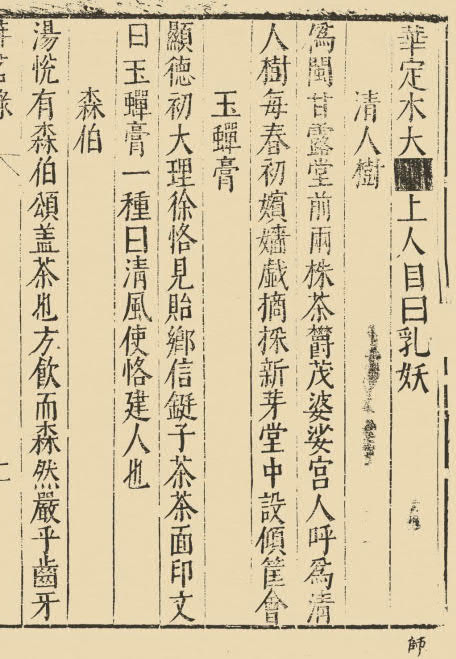 華定水大上人目曰乳妖
清人樹
爲閩甘露堂前兩株茶鬱茂婆娑宮人呼爲清
人樹每春初嬪嬙戱摘採新芽堂中設傾筐會
玉蟬膏
顯德初大理徐恪見貽鄉信鋌子茶茶面印文
曰玉蟬膏一種曰清風使恪建人也
森伯
湯悅有森伯頌盖茶也方飲而森然嚴乎齒牙
師